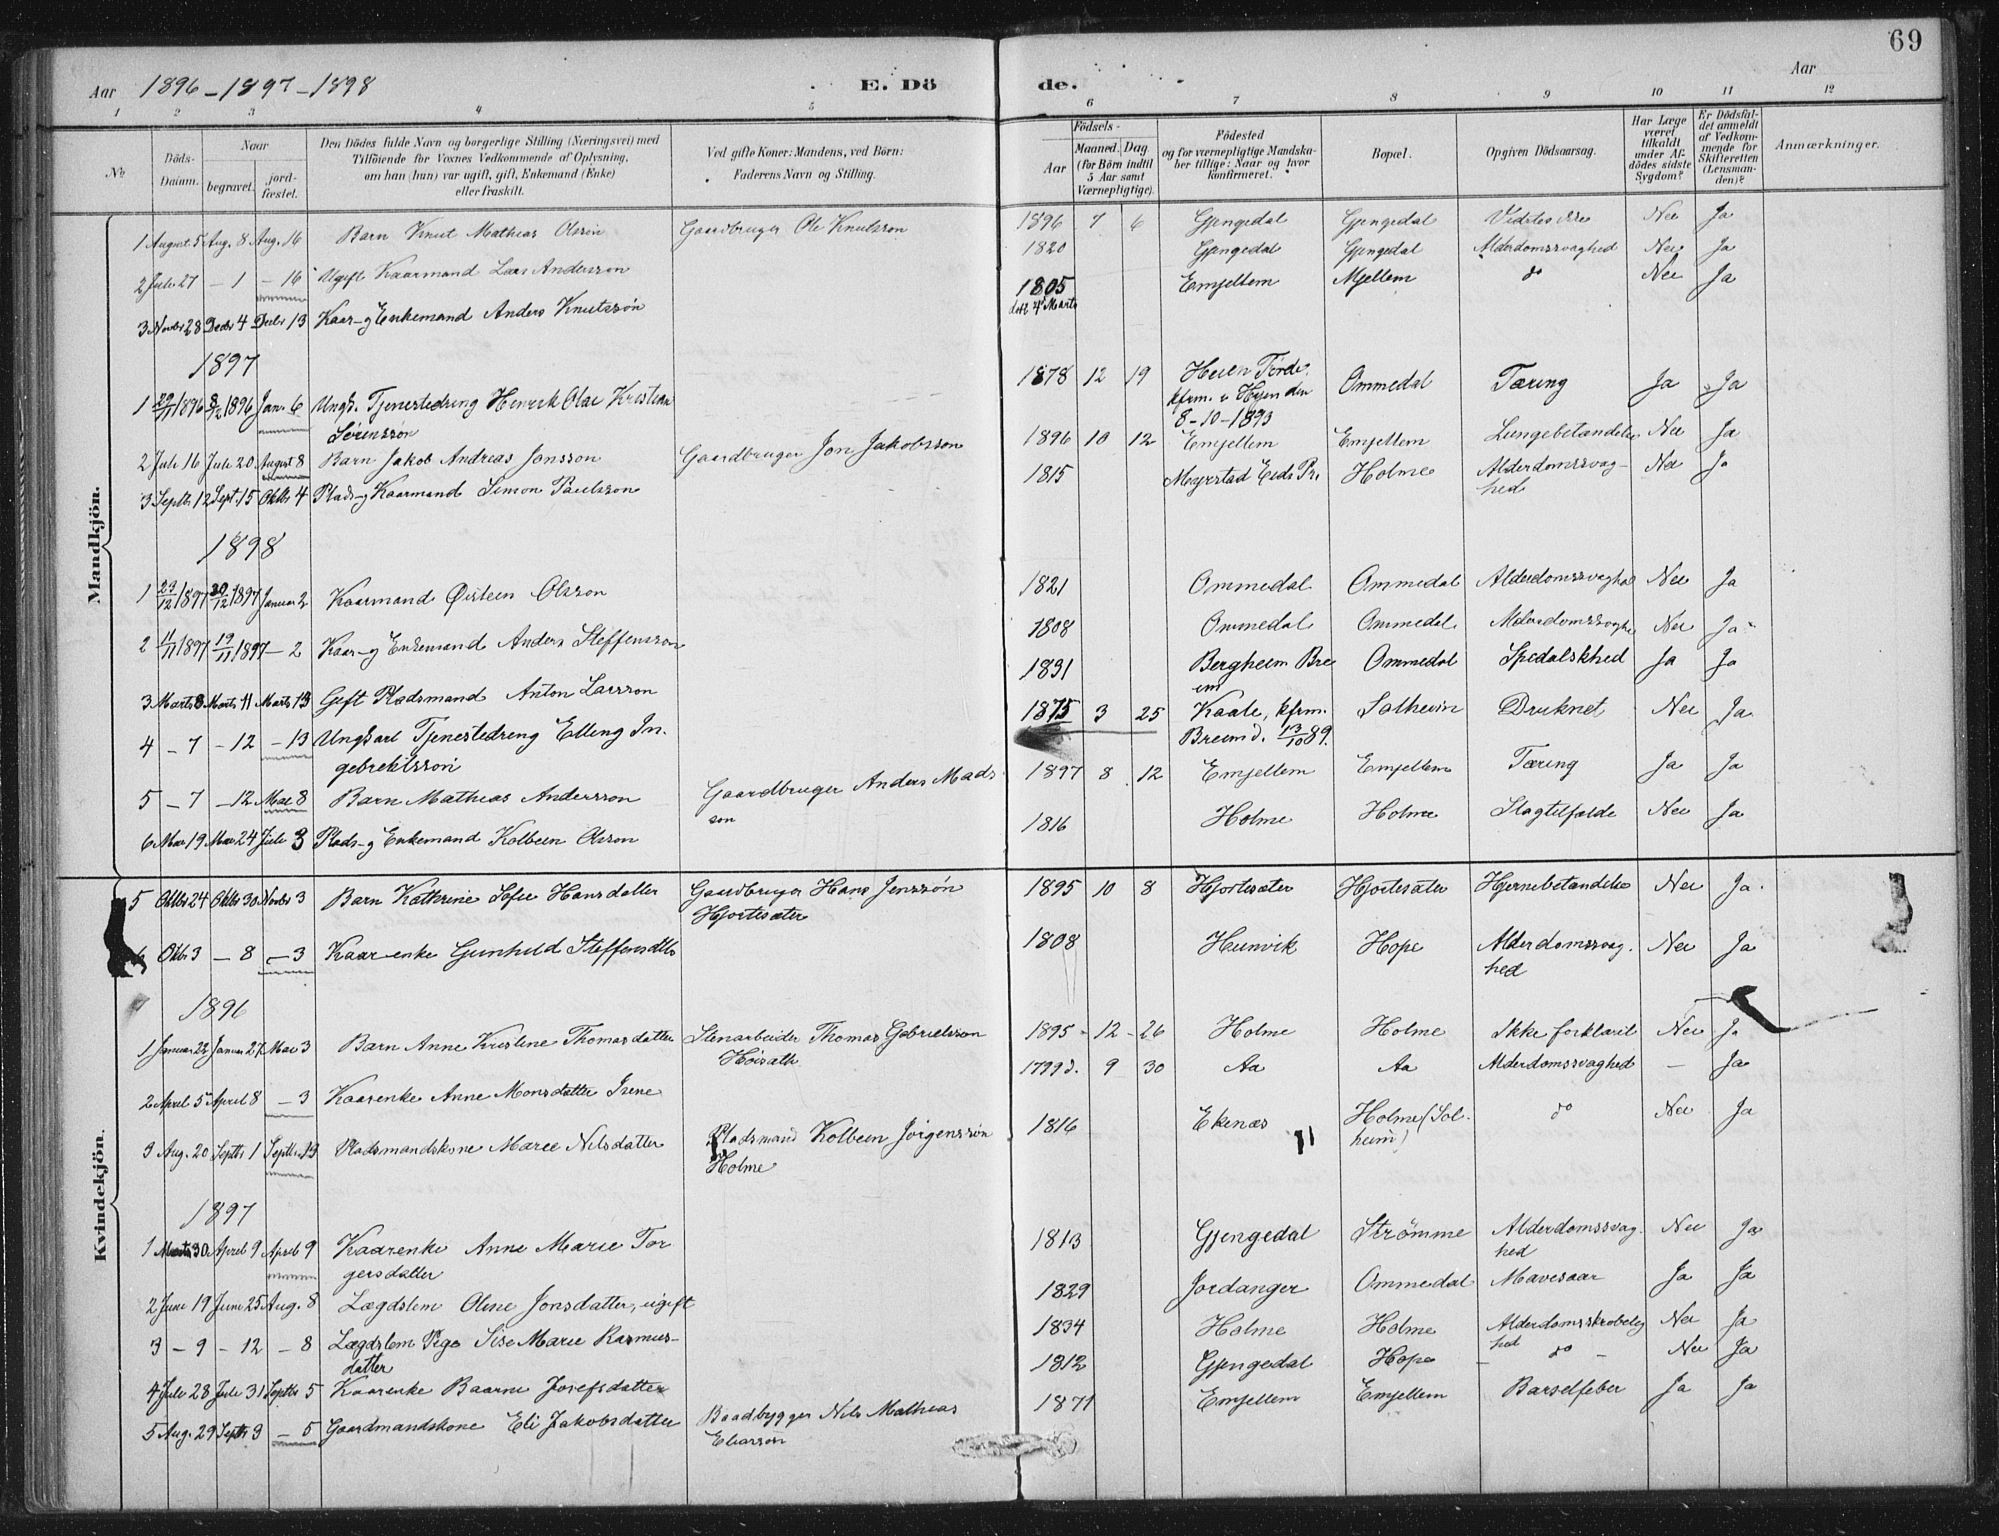 69
Aar 1896-1897-1898
E. Döde.
Aar
1 2 3 4 5 6 7 8 9 10 11 12
No
Döds-Datum.
Naar
begravet.
jord-fæstet.
Den Dödes fulde Navn og borgerlige Stilling (Næringsvei) med
Tilföiende for Voxnes Vedkommende af Oplysning,
om han (hun) var ugift, gift, Enkemand (Enke)
eller fraskilt.
Ved gifte Koner: Mandens, ved Börn:
Faderens Navn og Stilling.
Födsels-
Aar
Maaned. Dag
(for Börn indtil
5 Aar samt
Værnepligtige).
Födested
og for værnepligtige Mandskaber tillige: Naar og hvor
konfirmeret.
Bopæl.
Opgiven Dödsaarsag.
Har Læge
været
tilkaldt
under Afdödes sidste
Sygdom?
Er Dödsfaldet anmeldt
af Vedkommende for
Skifteretten
(Lensmanden)?
Anmærkninger.
Mandkjön.
1 August 5 Aug. 8 Aug. 16 Barn Knut Mathias Olsson Gaardbruger Ole Knutsson 1896 7 6 Gjengedal Gjengedal Nei Ja
2 Juli 27 - 1 - 16 Ugift Kaarmand Lars Andersson 1820 Gjengedal Gjengedal Alderdomssvaghed Nei Ja
3 Novbr 28 Decbr 4 Decbr 13 Kaar- og Enkemand Anders Knutssøn 1805 Emjellem Mjellem do Nei Ja
døbt 4 Marts
1897
1 29/11 1896 8/12 1896 Jan. 6 Ungk. Tjenestedreng Henrik Olai Kristian
Sørenssøn 1878 12 19 Heien Førde, kfrm. i Hyen den
8-10-1893 Ommedal Tæring Ja Ja
2 Juli 16 Juli 20 August 8 Barn Jakob Andreas Jonsson Gaardbruger Jon Jakobsson 1896 10 12 Emjellem Emjellem Lungebetændelse Nei Ja
3 Septbr 12 Sept. 15 Oktbr 4 Plads- og Kaarmand Simon Paulsson 1815 Eids Pr. Holme Alderdomssvag-
hed Nei Ja
1898
1 23/12 1897 30/12 1897 Januar 2 Kaarmand Øistein Olsson 1821 Ommedal Ommedal Alderdomssvaghed Nei Ja
2 11/11 1897 19/11 1897 - 2 Kaar- og Enkemand Anders Steffensson 1808 Ommedal Ommedal Alderdomssvaghed Nei Ja
3 Marts 8 Marts 11 Marts 13 Gift Pladsmand Anton Larsson 1831 Bergheim Bre
im Ommedal Spedalskhed Ja Ja
4 - 7 - 12 - 13 Ungkarl Tjenestedreng Elling In-
gebrektsson 1875 3 25 Kaale, kfrm.
Breim d. 13/10 89. Solheim Druknet Nei Ja
5 - 7 - 12 Mai 8 Barn Mathias Andersson Gaardbruger Anders Mads
son 1897 8 12 Emjellem Emjellem Tæring Ja Ja
6 Mai 19 Mai 24 Juli 3 Plads- og Enkemand Kolbein Olsson 1816 Holme Holme Slagtilfælde Nei Ja
Kvindekjön.
5 Oktbr 24 Oktbr 30 Novbr 3 Barn Kathrine Sofie Hansdatter Gaardbruger Hans Jenssøn
Hjortesæter 1895 10 8 Hjortesæter Hjortesæter Hjernebetændelse Nei Ja
6 Oktbr 3 - 8 - 3 Kaarenke Gunhild Steffensdtr 1808 Heimvik Hope Alderdomssvag-
hed Nei Ja
1896
1 Januar 22 Januar 27 Mai 3 Barn Anne Kristine Thomasdatter Stenarbeider Thomas Gabrielsson
1895 - 12 - 26 Holme Holme Ikke forklaret Nei Ja
2 April 5 April 8 - 3 Kaarenke Anne Monsdatter 1799 d. 9 30 Aa Aa Alderdomssvaghed - Ja
3 Aug. 20 Septbr 1 Septbr 13 Pladsmandskone Marie Nilsdatter Pladsmand Kolbein Jørgenssøn
Holme 1816 Ekenæs Holme (Sol-
heim) do Nei Ja
1897
1 Marts 30 April 9 April 9 Kaarenke Anne Marie Tor
gersdatter 1813 Gjengedal Strømme Alderdomssvag-
hed Nei Ja
2 Juni 19 Juni 25 Aug. 8 Lægdslem Oline Jonsdatter, ugift 1829 Jordanger Ommedal Mavesaar Ja Ja
3 - 9 - 12 - 8 Lægdslem Pige Sise Marie Rasmus-
datter 1834 Holme Holme Alderdomsskrøbelig
hed Nei Ja
4 Juli 28 Juli 31 Septbr 5 Kaarenke Josefsdatter 1812 Gjengedal Hope - do - Nei Ja
5 Aug. 29 Septbr 3 - 5 Gaardmandskone Eli Jakobsdatter Baadbygger Nils Mathias
Eliassøn 1871 Emjellem Emjellem Barselfeber Ja Ja